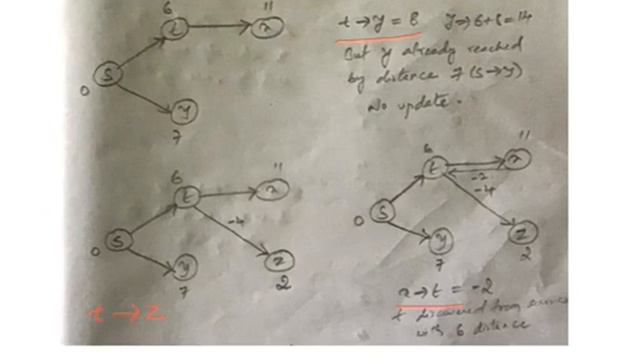 6
11
t
x
S
0
y
7
t → y = 8 y ⇒ 6+8 = 14
But y already reached
by distance 7 (s → y)
No update.
6
11
t
x
-4
S
0
y
7
z
2
t → z
11
6
t
x
-2
-4
S
0
y
7
z
2
x → t = -2
t discovered from source
with 6 distance